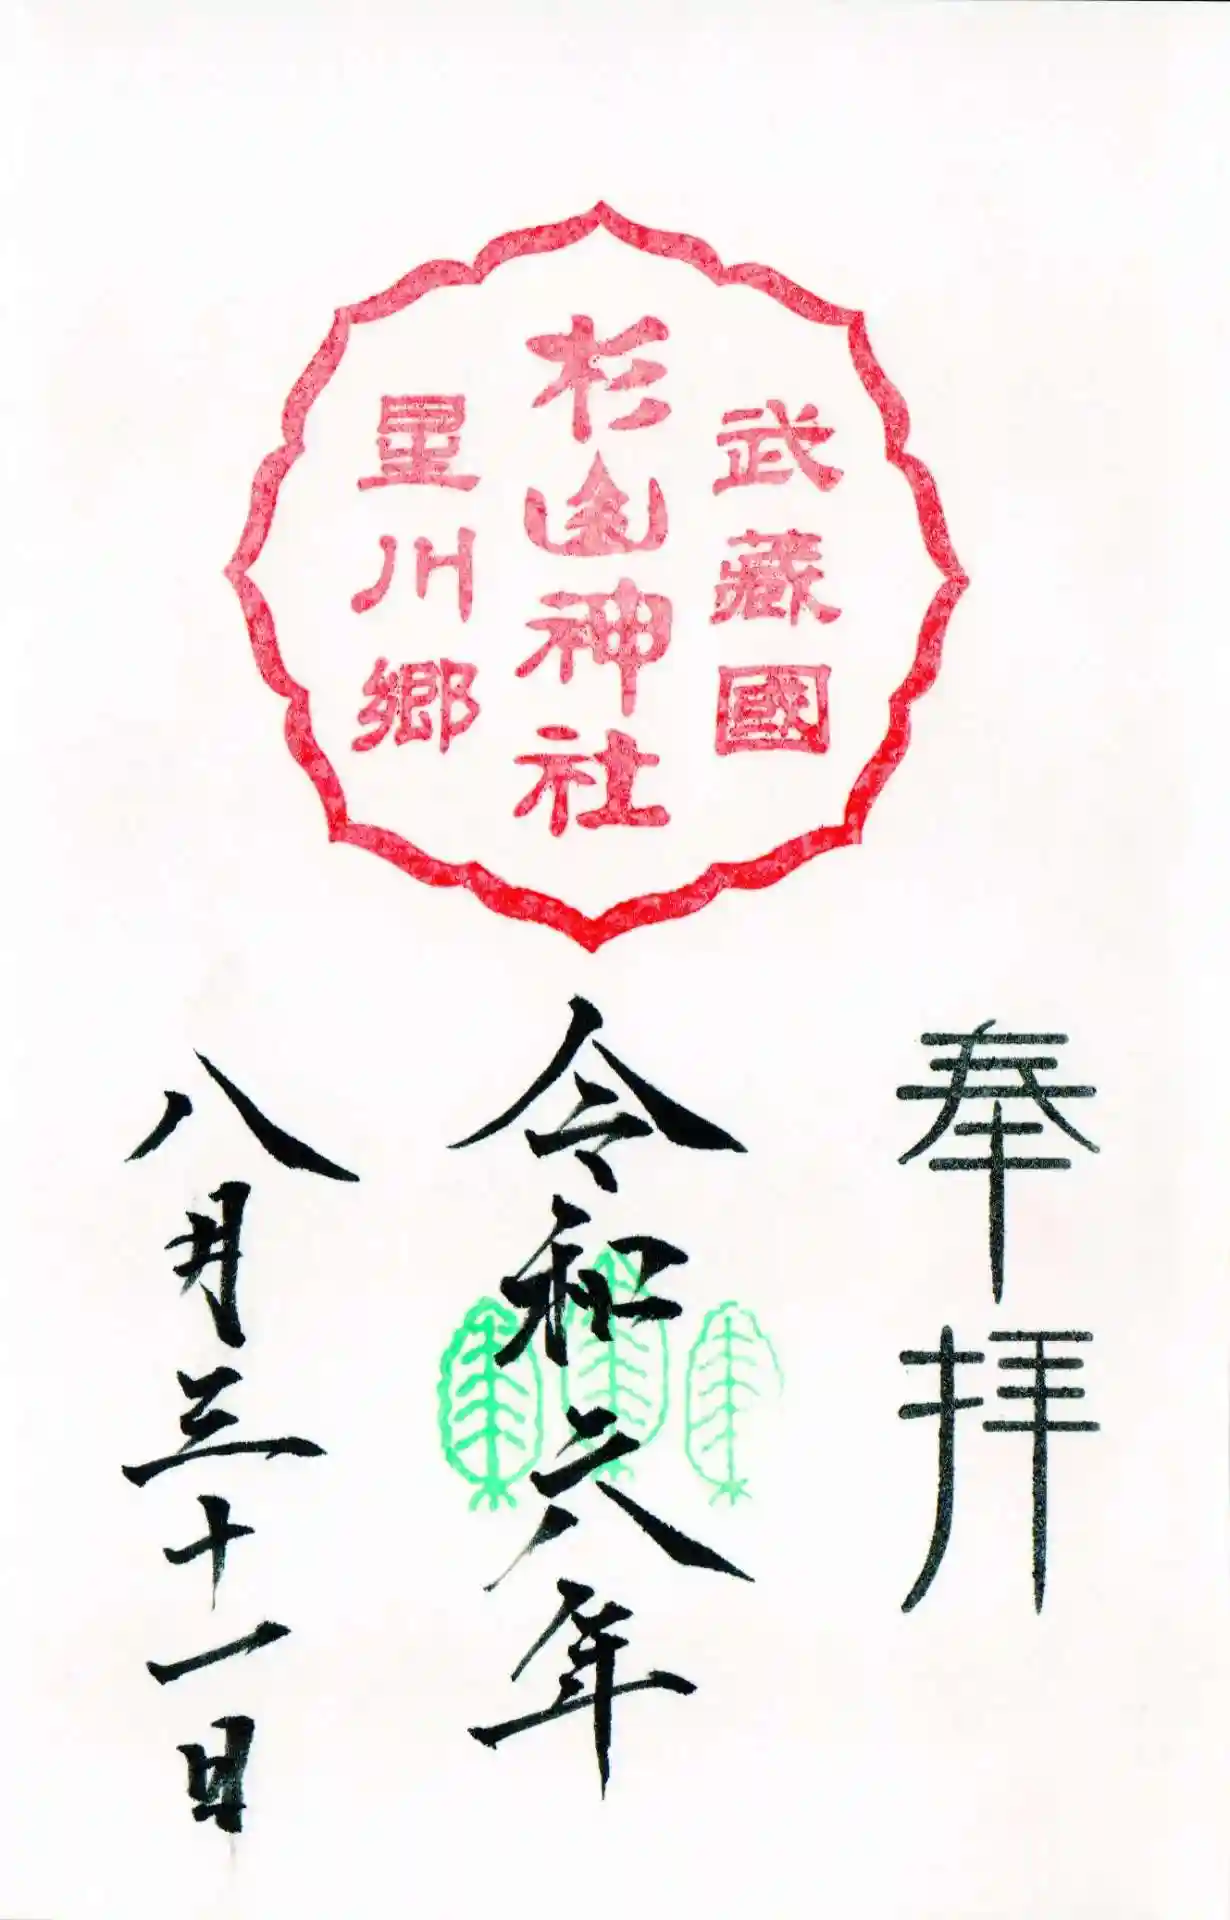 武藏國
杉山神社
星川郷
奉拝
令和六年
八月三十一日